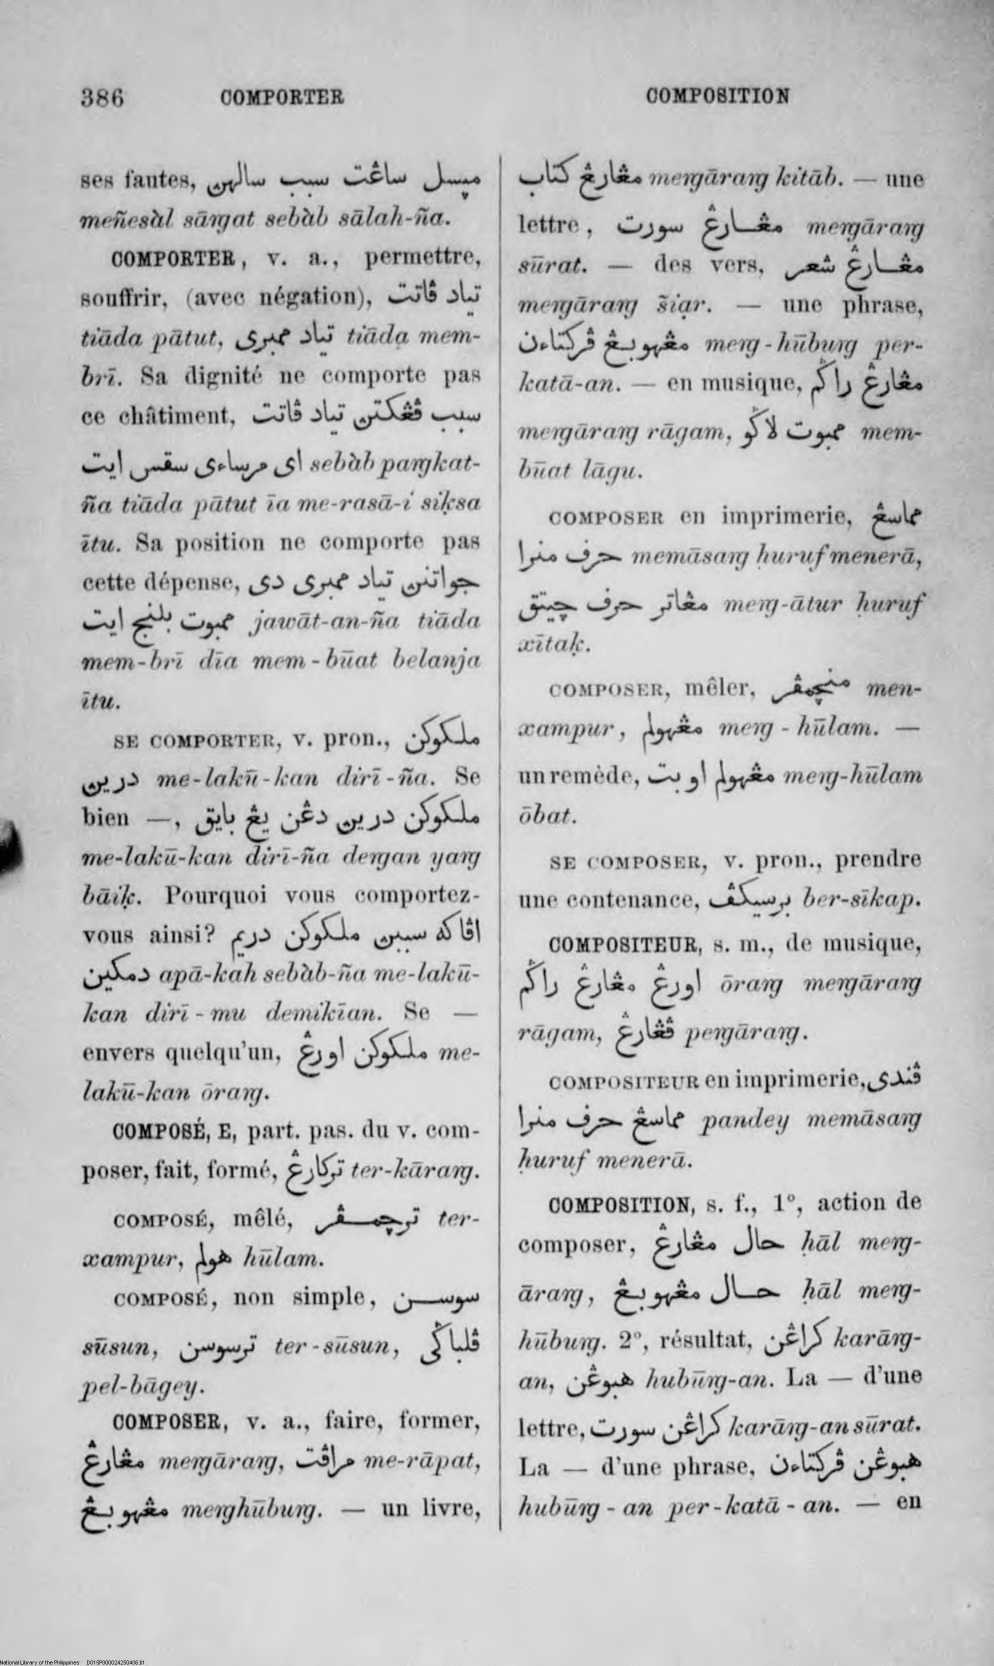 386 COMPORTER COMPOSITION
ses fautes, ميسل ساڠت سبب سالهن
meñesàl sāṅgat sebàb sālah-ña.
COMPORTER, v. a., permettre,
souffrir, (avec négation), تياد ڤاتت
tiāda pātut, تياد ممبرى tiāda mem-
brī. Sa dignité ne comporte pas
ce châtiment, سبب ڤڠكتن تياد ڤاتت
اى مرساءى سقس ايت sebàb paṅgkat-
ña tiāda pātut īa me-rasā-i siḳsa
ītu. Sa position ne comporte pas
cette dépense, جواتنن تياد ممبرى دى
ممبوت بلنج ايت jawāt-an-ña tiāda
mem-brī dīa mem-būat belanja
ītu.
SE COMPORTER, v. pron., ملكوكن
درين me-lakū-kan dirī-ña. Se
bien —, ملكوكن درين دڠن يڠ بايق
me-lakū-kan dirī-ña deṅgan yaṅg
bāiḳ. Pourquoi vous comportez-
vous ainsi? اڤاكه سببن ملكوكن دريم
دمكين apā-kah sebàb-ña me-lakū-
kan dirī-mu demikīan. Se —
envers quelqu'un, ملكوكن اورڠ me-
lakū-kan ōraṅg.
COMPOSÉ, E, part. pas. du v. com-
poser, fait, formé, تركارڠ ter-kāraṅg.
COMPOSÉ, mêlé, ترچمڤر ter-
xampur, هولم hūlam.
COMPOSÉ, non simple, سوسن
sūsun, ترسوسن ter-sūsun, ڤلباڬى
pel-bāgey.
COMPOSER, v. a., faire, former,
مڠارڠ meṅgāraṅg, مراڤت me-rāpat,
مڠهوبڠ meṅghūbuṅg. — un livre,
مڠارڠ كتاب meṅgāraṅg kitāb. — une
lettre, مڠارڠ سورت meṅgāraṅg
sūrat. — des vers, مڠارڠ شعر
meṅgāraṅg šiạr. — une phrase,
مڠهوبڠ ڤركتاءن meṅg-hūbuṅg per-
katā-an. — en musique, مڠارڠ راڬم
meṅgāraṅg rāgam, ممبوت لاڬو mem-
būat lāgu.
COMPOSER en imprimerie, مماسڠ
حرف منرا memāsaṅg ḥuruf menerā,
مڠاتر حرف چيتق meṅg-ātur ḥuruf
xītaḳ.
COMPOSER, mêler, منچمڤر men-
xampur, مڠهولم meṅg-hūlam. —
un remède, مڠهولم اوبت meṅg-hūlam
ōbat.
SE COMPOSER, v. pron., prendre
une contenance, برسيكڤ ber-sīkap.
COMPOSITEUR, s. m., de musique,
اورڠ مڠارڠ راڬم ōraṅg meṅgāraṅg
rāgam, ڤڠارڠ peṅgāraṅg.
COMPOSITEUR en imprimerie, ڤندى
مماسڠ حرف منرا pandey memāsaṅg
ḥuruf menerā.
COMPOSITION, s. f., 1°, action de
composer, حال مڠارڠ ḥāl meṅg-
āraṅg, حال مڠهوبڠ ḥāl meṅg-
hūbuṅg. 2°, résultat, كراڠن karāṅg-
an, هبوڠن hubūṅg-an. La — d'une
lettre, كراڠن سورت karāṅg-an sūrat.
La — d'une phrase, هبوڠن ڤركتاءن
hubūṅg-an per-katā-an. — en
National Library of the Philippines